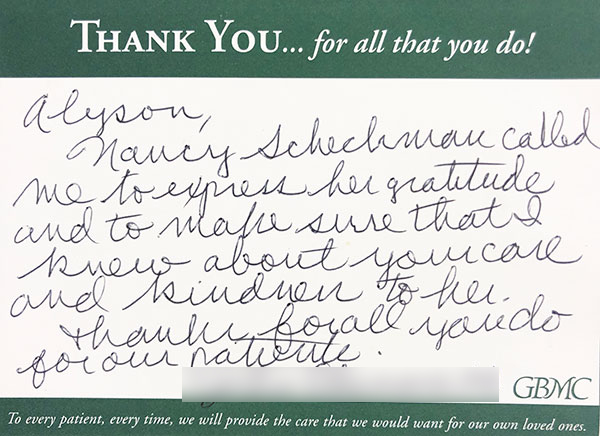 THANK YOU... for all that you do!
Alyson,
Nancy Scheckman called
me to express her gratitude
and to make sure that I
knew about your care
and kindness to her.
Thanks for all you do
for our patients.
GBMC
To every patient, every time, we will provide the care that we would want for our own loved ones.